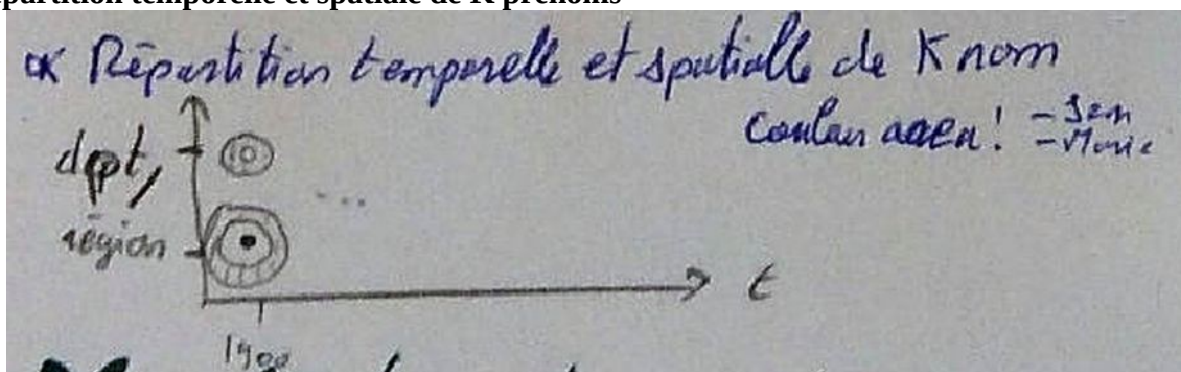 partition temporelle et spatiale de K prénoms
Répartition temporelle et spatialle de K nom
- Jean
- Marie
dpt,
région
...
t
1900